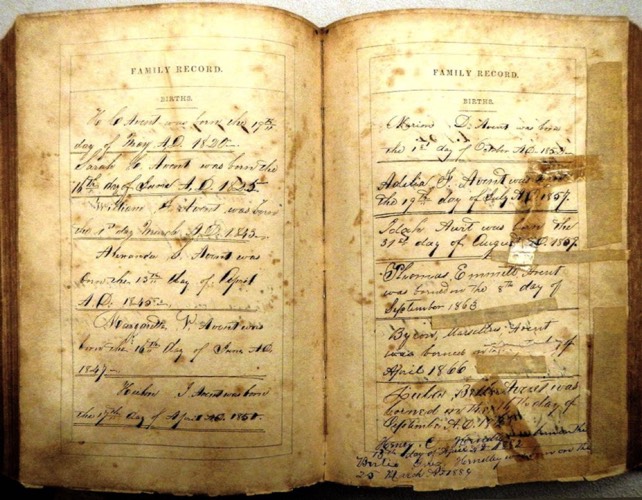 FAMILY RECORD.
BIRTHS.
H C Avent was born the 19th
day of May A.D. 1820
Sarah C Avent was born the
16th day of June A.D. 1825
William Avent was born
the 1st day March A.D. 1843
Avent was
born the 15th day of April
A.D. 1845
Margarette V. Avent was
born the 16th day of June A.D.
1847
J Avent was born
the 17th day of April A.D. 1850
FAMILY RECORD.
BIRTHS.
Marion D. Avent was born
the 1st day of October A.D. 1853
Adelia F. Avent was born
the 19th day of July A.D. 1857.
Idah Hurt was born the
31st day of August A.D. 1857
Thomas Emmett Avent
was borned on the 8th day of
September 1863
Byron Marsellus Avent
was borned
April 1866
Avent was
borned on the day of
September A.D.
Henry C. born on the
18th day of April 1882
Hendley was born on the
25 March 1884